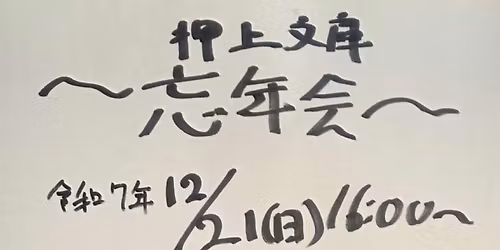 押上文庫
〜忘年会〜
令和7年 12/21(日) 16:00〜